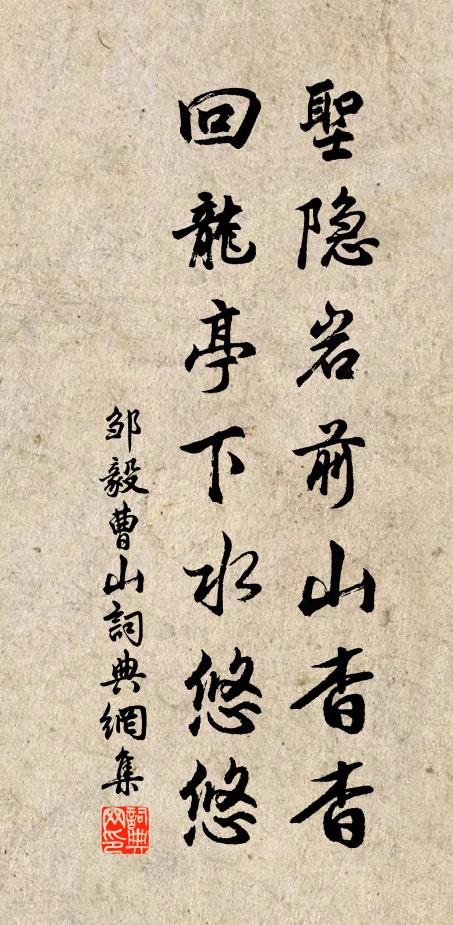 聖隐岩前山杳杳
回龍亭下水悠悠
邹毅曹山詞典網集
詞典网印